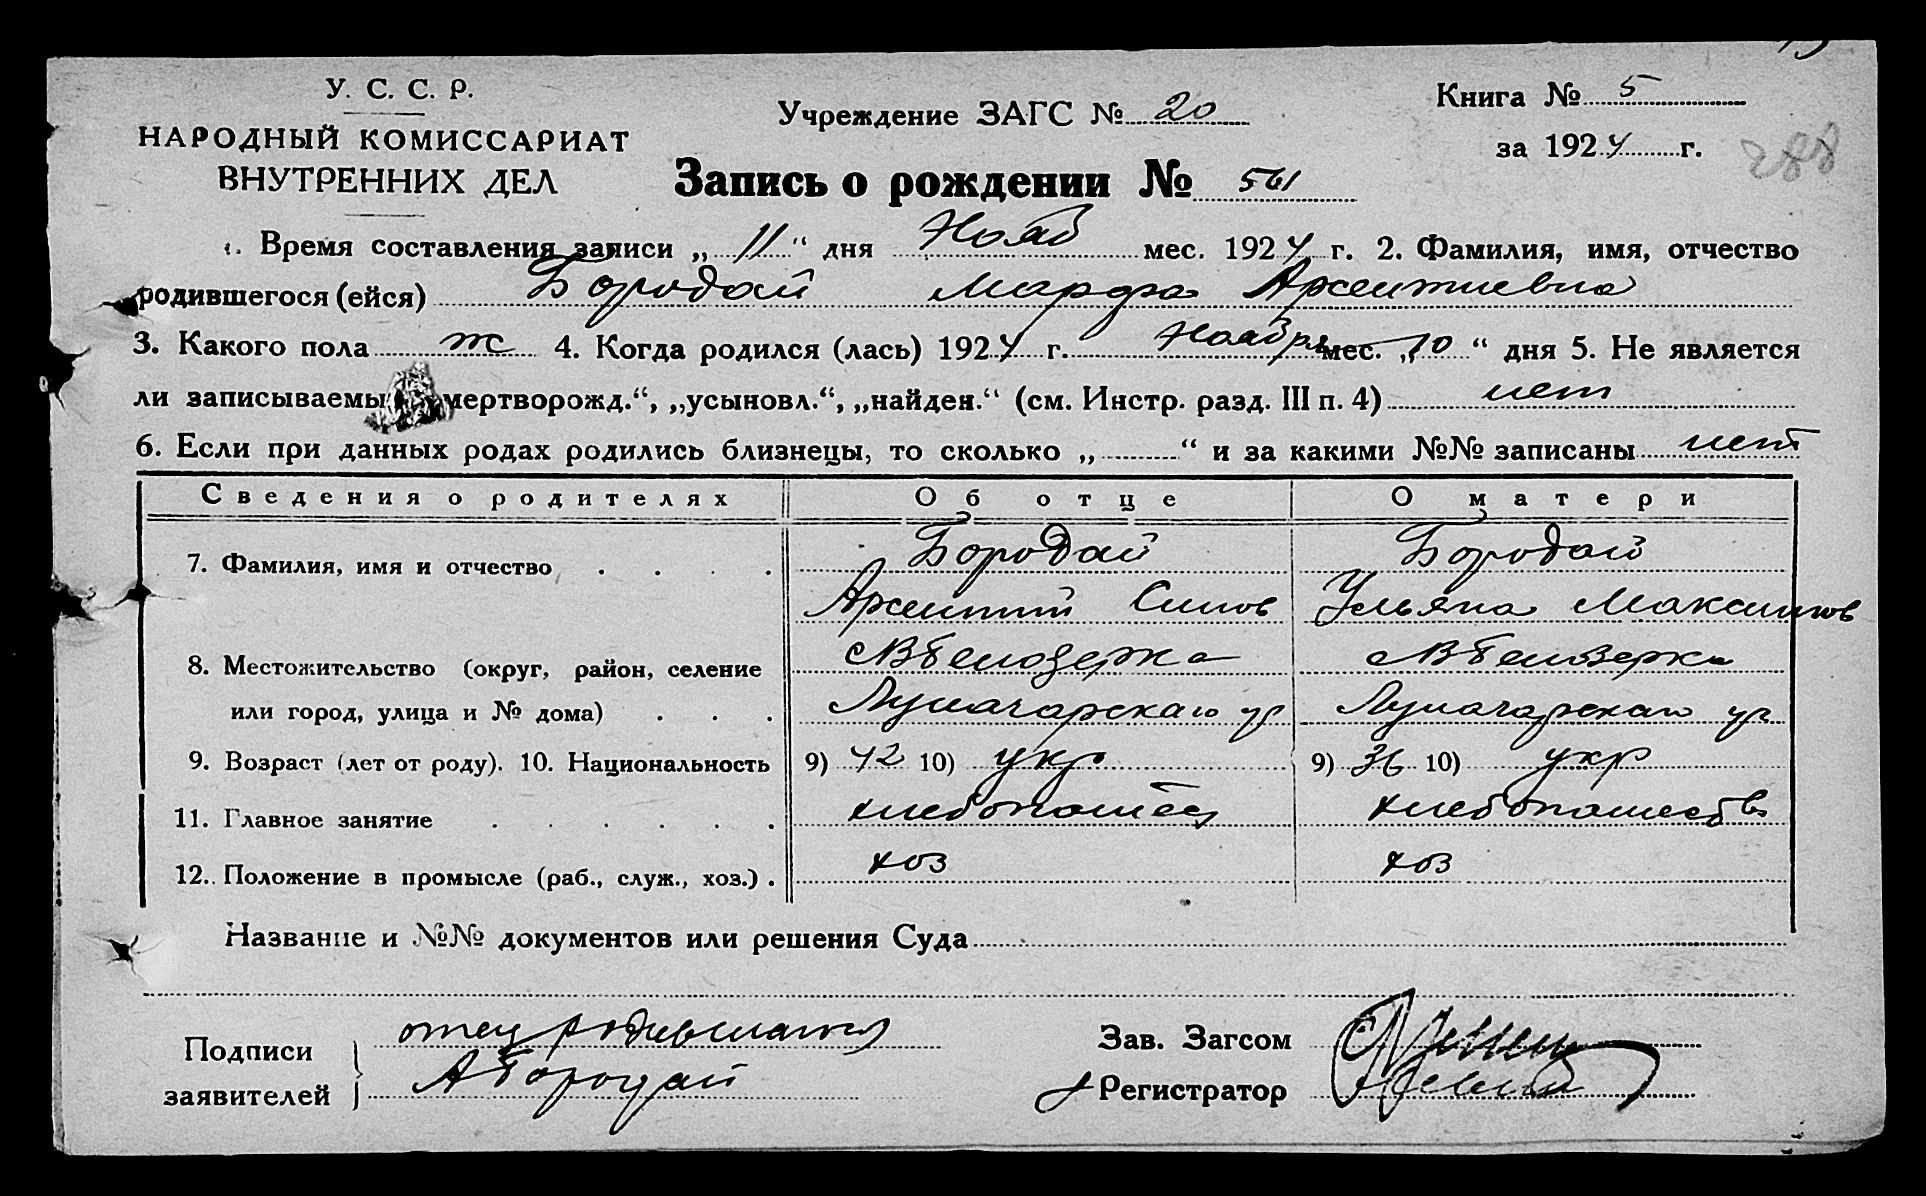 У. С. С. Р.
НАРОДНЫЙ КОМИССАРИАТ
ВНУТРЕННИХ ДЕЛ
Учреждение ЗАГС № 20
Книга № 5
за 1924 г.
288
Запись о рождении № 561
1. Время составления записи „ 11 “ дня Нояб мес. 1924 г. 2. Фамилия, имя, отчество
родившегося (ейся) Бородай Марфа Арсентиевна
3. Какого пола ж 4. Когда родился (лась) 1924 г. Ноября мес. „ 10 “ дня 5. Не является
ли записываемы мертворожд.“, „усыновл.“, „найден.“ (см. Инстр. разд. III п. 4) нет
6. Если при данных родах родились близнецы, то сколько „ “ и за какими №№ записаны нет
Сведения о родителях Об отце О матери
7. Фамилия, имя и отчество Бородай Бородай
Арсентий Ульяна Максимов
8. Местожительство (округ, район, селение В белозерка В белозерка
или город, улица и № дома) Луначарскаго ул Луначарскаго ул
9. Возраст (лет от роду). 10. Национальность 9) 42 10) укр 9) 36 10) укр
11. Главное занятие хлебопашец хлебопашеств
12. Положение в промысле (раб., служ., хоз.) хоз хоз
Название и №№ документов или решения Суда
Подписи заявителей отец
А Бородай
Зав. Загсом
Регистратор